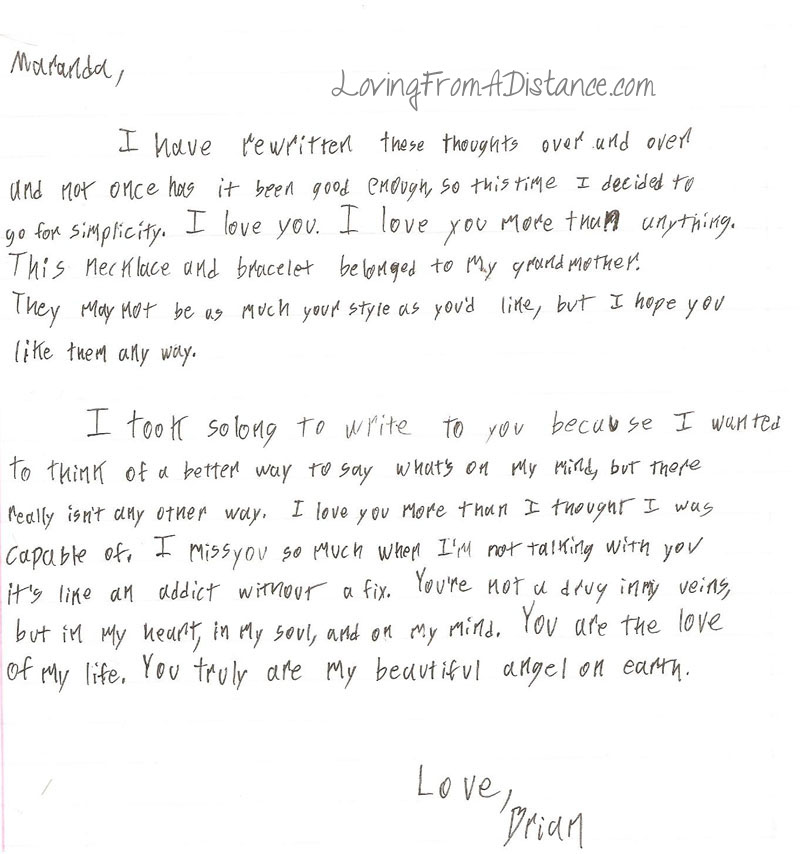 Maranda,
LovingFromADistance.com
I have rewritten these thoughts over and over
and not once has it been good enough, so this time I decided to
go for simplicity. I love you. I love you more than anything.
This necklace and bracelet belonged to my grandmother.
They may not be as much your style as you'd like, but I hope you
like them any way.
I took solong to write to you because I wanted
to think of a better way to say what's on my mind, but there
really isn't any other way. I love you more than I thought I was
capable of. I missyou so much when I'm not talking with you
it's like an addict without a fix. You're not a drug in my veins,
but in my heart, in my soul, and on my mind. You are the love
of my life. You truly are my beautiful angel on earth.
Love,
Brian